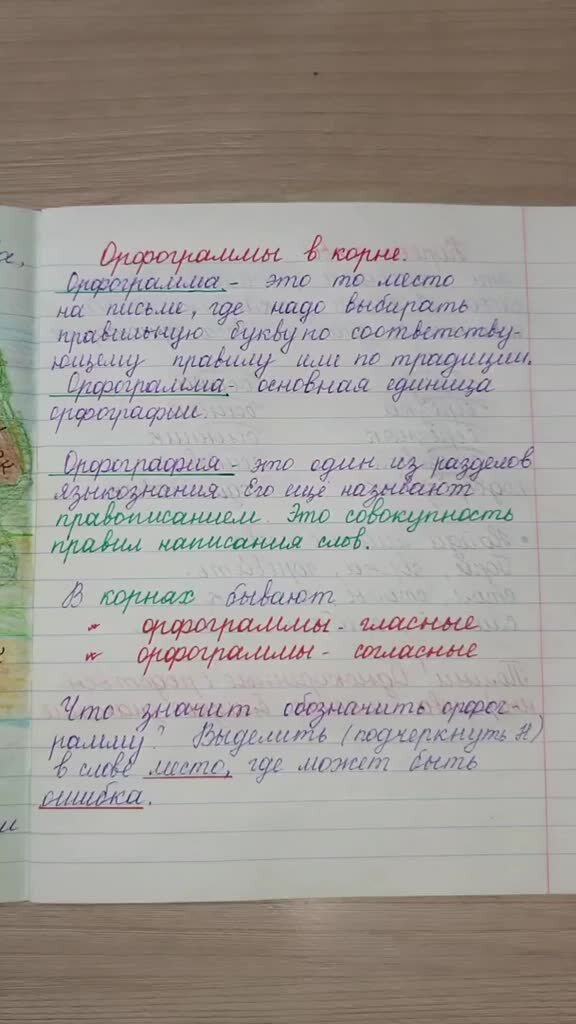 Орфограммы в корне.
Орфограмма - это то место
на письме, где надо выбирать
правильную букву по соответству-
ющему правилу или по традиции.
Орфограмма - основная единица
орфографии.
Орфография - это один из разделов
языкознания. Его ещё называют
правописанием. Это совокупность
правил написания слов.
В корнах бывают
* орфограммы - гласные
* орфограммы - согласные
Что значит обозначить орфог-
рамму? Выделить (подчеркнуть)
в слове место, где может быть
ошибка.